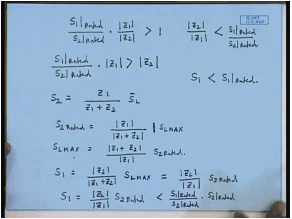 S₁|Rated / S₂|Rated · |Z₁| / |Z₂| > 1    |Z₂| / |Z₁| < S₁|Rated / S₂|Rated
S₁|Rated / S₂|Rated · |Z₁| > |Z₂|
S₁ < S₁|Rated.
S₂ = Z₁ / (Z₁ + Z₂) S̄_L
S₂ Rated = |Z₁| / |Z₁ + Z₂| |S_L MAX
S_L MAX = |Z₁ + Z₂| / |Z₁| S₂ Rated.
S₁ = |Z₂| / |Z₁ + Z₂| S_L MAX = |Z₂| / |Z₁| S₂ Rated
S₁ = |Z₂| / |Z₁| S₂ Rated < S₁|Rated / S₂|Rated · S₂|Rated